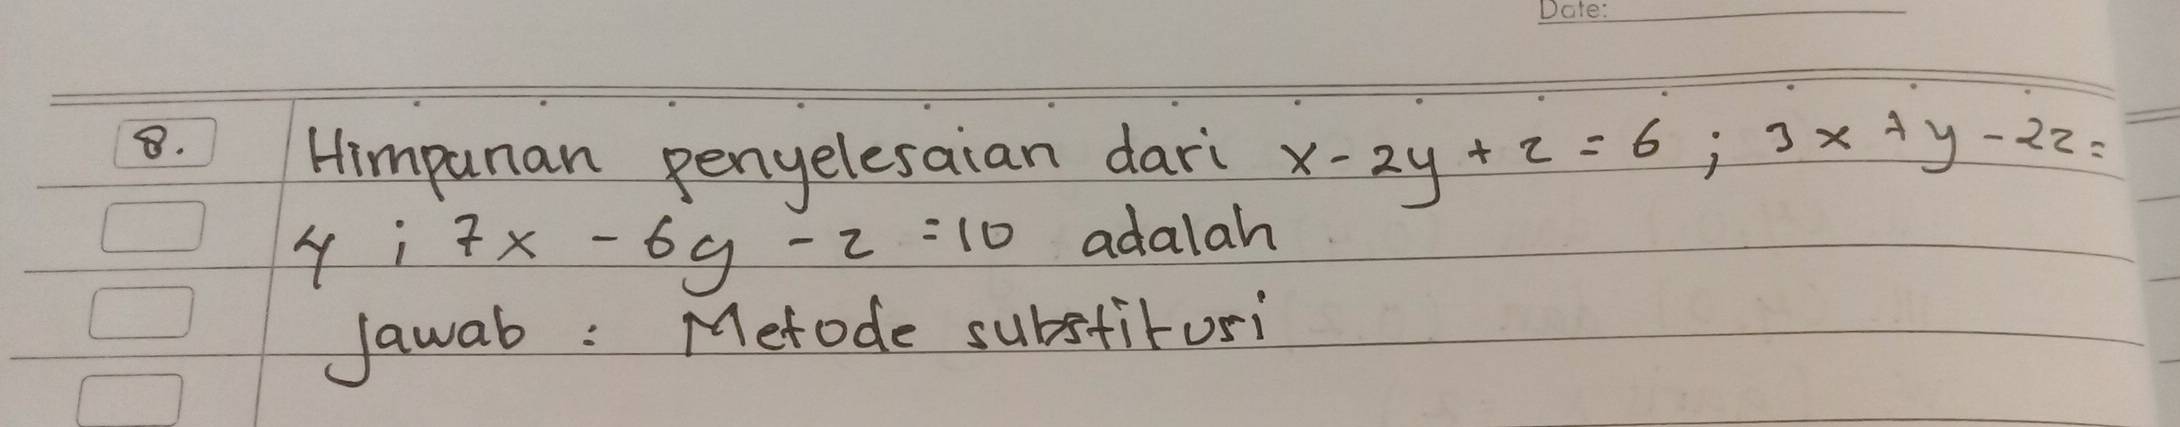 Date:
8. Himpunan penyelesaian dari x - 2y + z = 6 ; 3x + y - 2z =
4 ; 7x - 6y - z = 10 adalah
Jawab : Metode substitusi